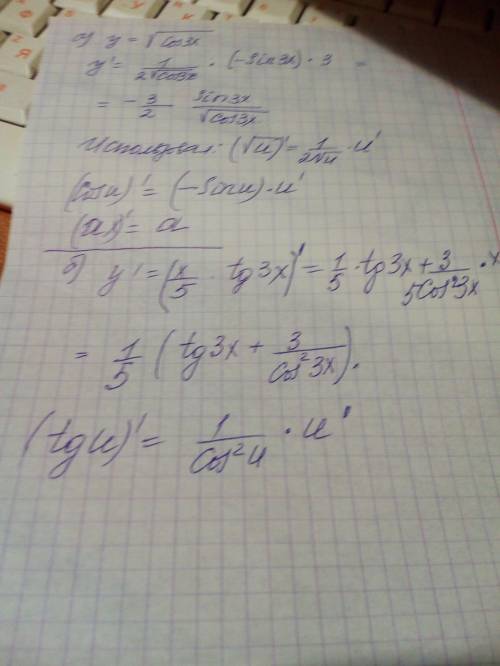 а) y = √cos3x
y' = 1/(2√cos3x) · (-sin3x) · 3 =
= -3/2 sin3x/√cos3x
Использовал: (√u)' = 1/(2√u) · u'
(cosu)' = (-sinu)·u'
(ax)' = a
б) y' = (x/5 · tg3x)' = 1/5 · tg3x + 3/(5cos²3x) · x
= 1/5 (tg3x + 3/cos²3x).
(tgu)' = 1/cos²u · u'